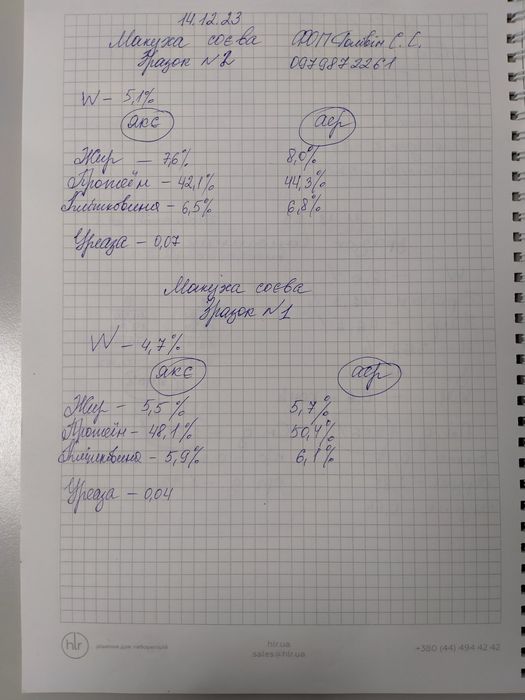 14.12.23
Макуха соєва ФОП Головін С. С.
Зразок №2 0979872261
W – 5,1%
якє аср
Жир – 7,6% 8,0%
Протеїн – 42,1% 44,3%
Клітковина – 6,5% 6,8%
Уреаза – 0,07
Макуха соєва
Зразок №1
W – 4,7%
якє аср
Жир – 5,5% 5,7%
Протеїн – 48,1% 50,4%
Клітковина – 5,9% 6,1%
Уреаза – 0,04
hlr рішення для лабораторій hlr.ua +380 (44) 494 42 42
sales@hlr.ua